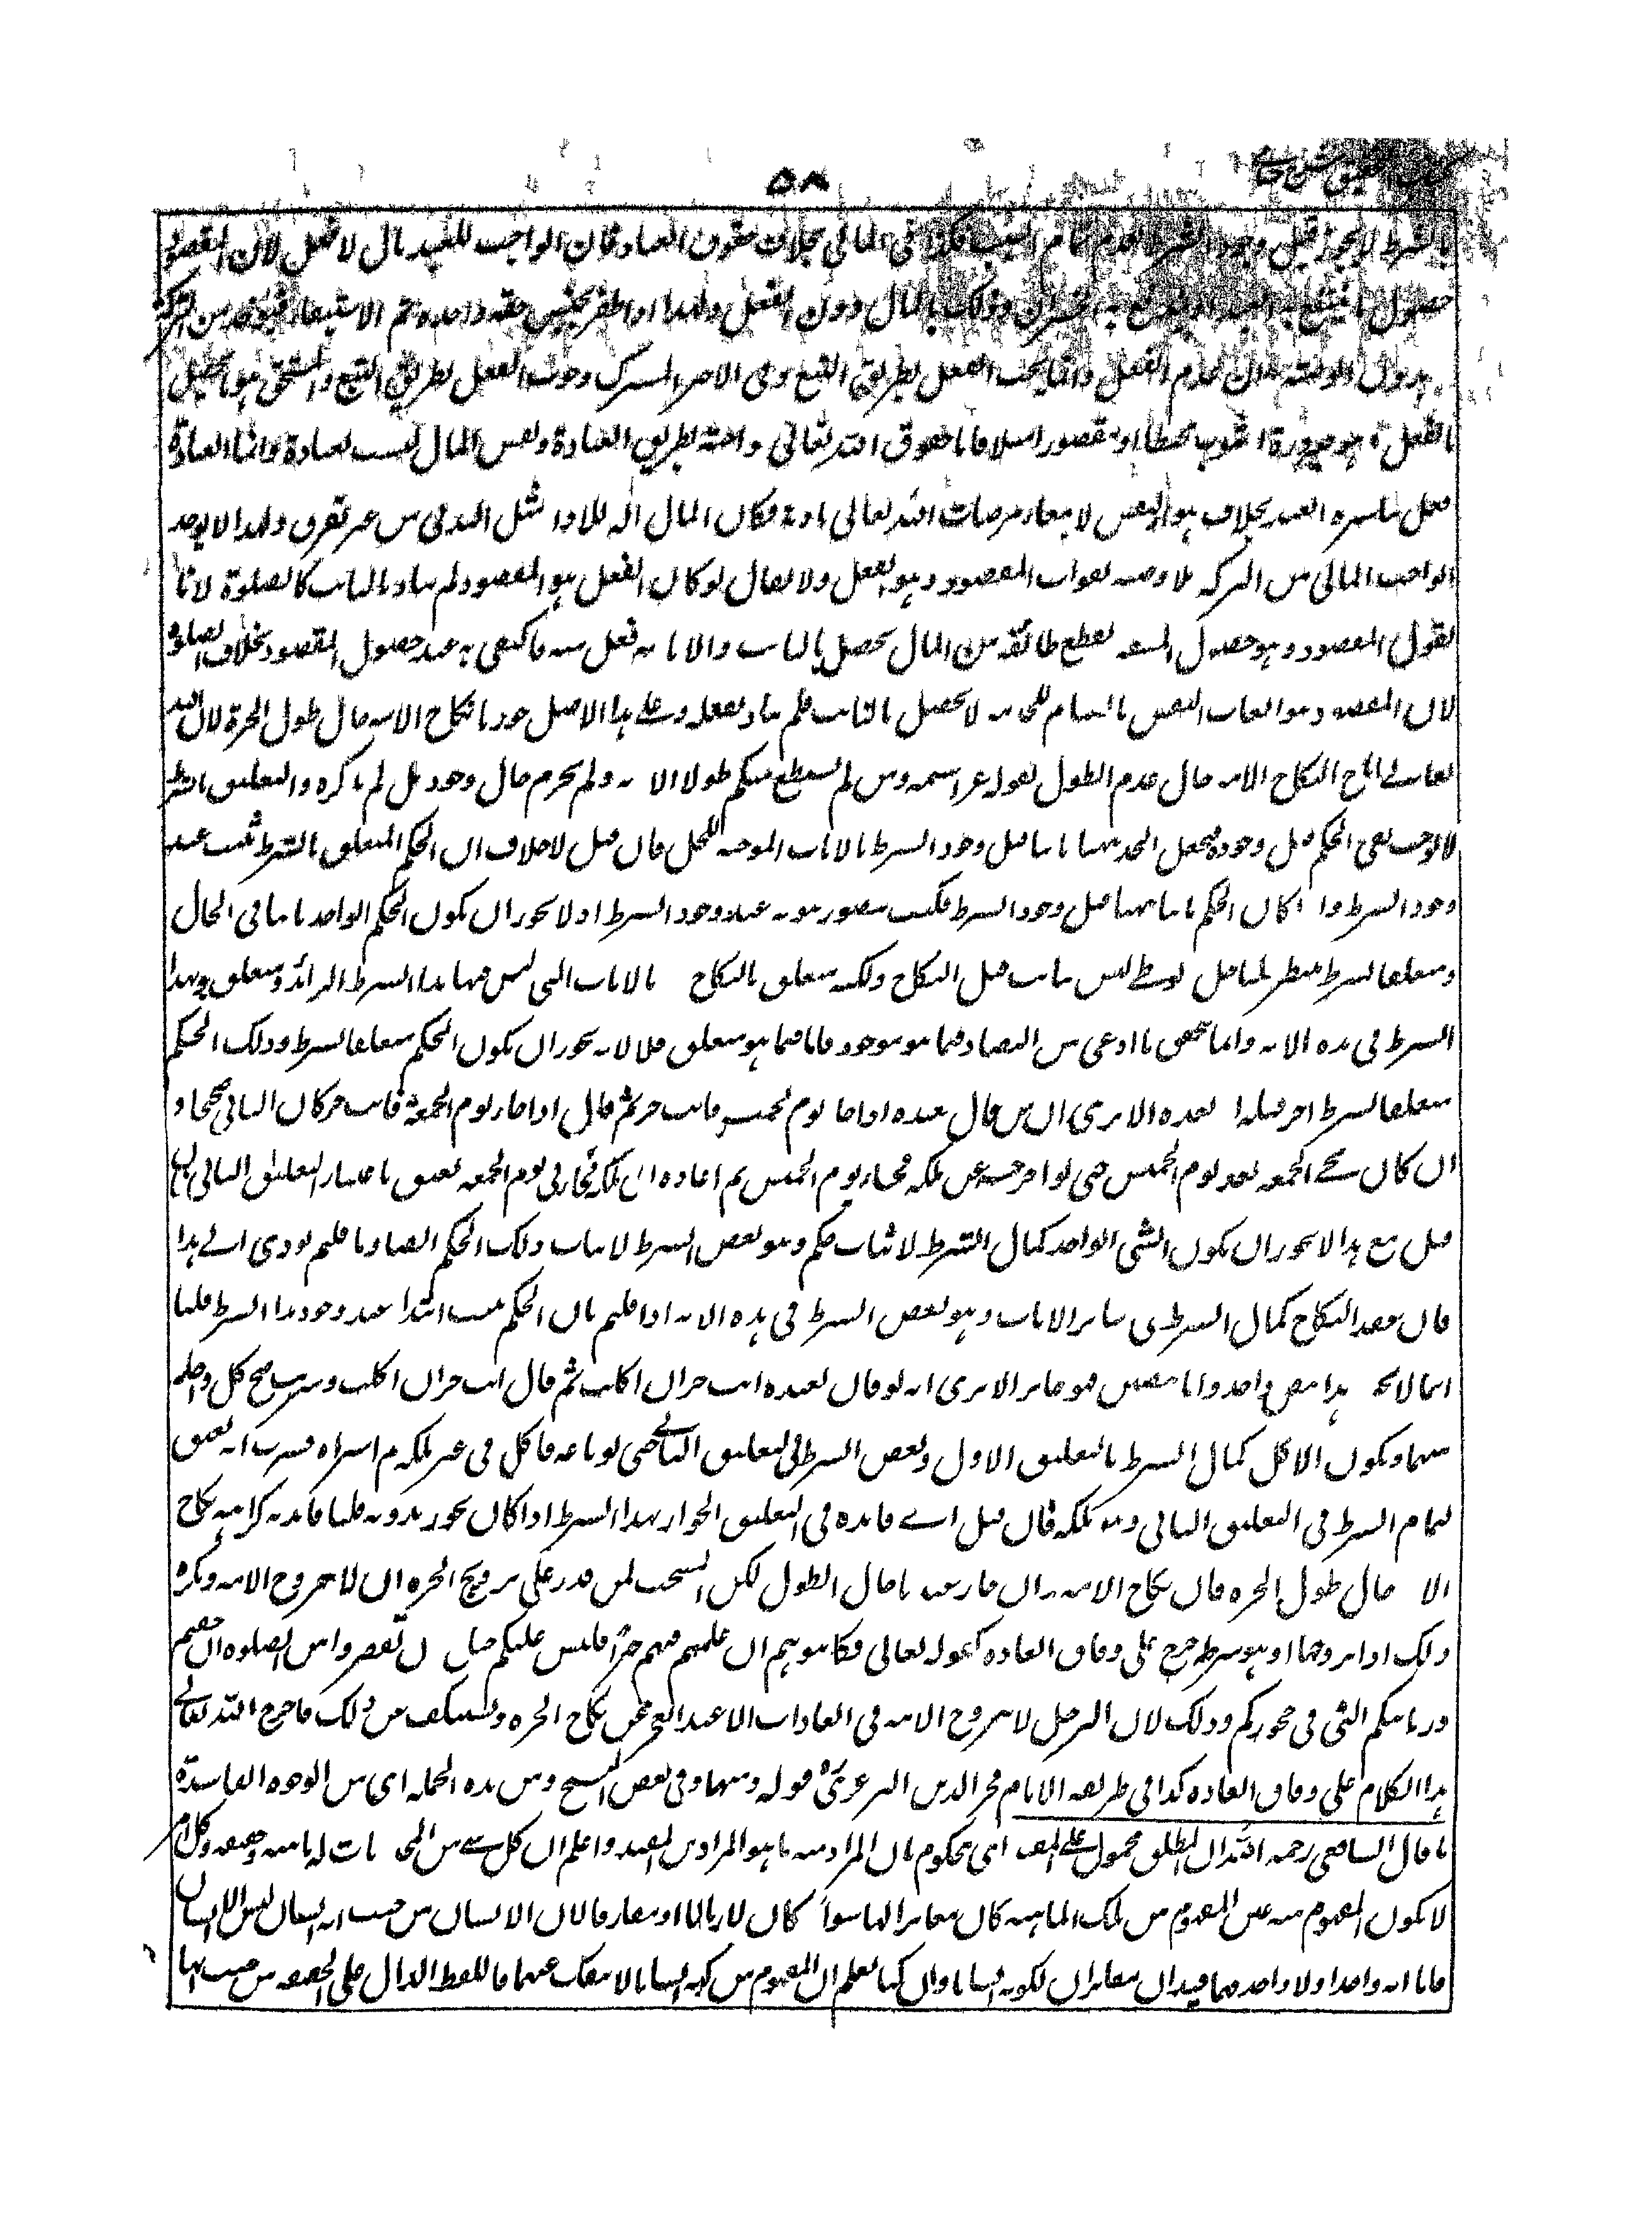 ٥٨
بالشرط لا يجوز قبل وجود الشرط لعدم تمام السبب فكذا في المالي بخلاف حقوق العباد فان الواجب للعبد مال لا فعل لان المقصود
حصول ما ينتفع به العبد او يندفع به الخسران وذلك بالمال دون الفعل ولهذا اذا ظفر بجنس حقه واخذه تم الاستيفاء فيؤخذ من التركة
الفعل وانما يجب الفعل بطريق التبع وفي الاجير المشترك وجوب الفعل بطريق التبع والمستحق هو ما يحصل
بالفعل وهو صيرورة الثوب مخيطا او مقصورا فاما حقوق الله تعالى واجبة بطريق العبادة ونفس المال ليست بعبادة وانما العبادة
فعل يباشره العبد بخلاف هوى النفس لابتغاء مرضات الله تعالى فكان المال آلة للاداء مثل البدني من غير تفرق ولهذا لا يوخذ
الواجب المالي من التركة بلا وصية لفوات المقصود وهو الفعل ولا يقال لو كان الفعل هو المقصود لم يتاد بالنائب كالصلوة لانا
نقول المقصود وهو حصول المشقة بقطع طائفة من المال يحصل بالنائب والانابة فعل منه فاكتفى به عند حصول المقصود بخلاف الصلوة
لان المقصود وهو اتعاب النفس بالقيام للخدمة لا يحصل بالنائب فلم يتاد بفعله وعلى هذا الاصل جوزنا نكاح الامة حال طول الحرة لان الله
تعالى اباح النكاح الامة حال عدم الطول بقوله عز اسمه ومن لم يستطع منكم طولا الاية ولم يحرم حال وجوده بل لم يذكره والتعليق بالشرط
لا يوجب نفي الحكم قبل وجوده فيجعل الحل ثابتا قبل وجود الشرط بالايات الموجبة للحل فان قيل لا خلاف ان الحكم المتعلق بالشرط يثبت عند
وجود الشرط واذا كان الحكم ثابتا ههنا قبل وجود الشرط فكيف يتصور ثبوته عند وجود الشرط اذ لا يجوز ان يكون الحكم الواحد ثابتا في الحال
ومتعلقا بشرط منتظر قلنا حل الوطي ليس ثابت قبل النكاح ولكنه متعلق بالنكاح بالايات التي ليس فيها هذا الشرط الزائد ومتعلق بهذا
السرط في هذه الاية وانما يتحقق ما ادعى من التضاد فيما هو موجود فاما فيما هو متعلق فلا لانه يجوز ان يكون الحكم متعلقا بشرط وذلك الحكم
متعلقا بشرط اخر قبله او بعده الا يرى ان من قال لعبده اذا جاء يوم الخميس فانت حر ثم قال اذا جاء يوم الجمعة فانت حر كان الثاني صحيحا و
ان كان مجي الجمعة بعد يوم الخميس حتى لو اخرجه عن ملكه فجاء يوم الخميس ثم اعاده الى ملكه فجاء يوم الجمعة يعتق باعتبار التعليق الثاني فان
قيل مع هذا لا يجوز ان يكون الشي الواحد كمال الشرط لاثبات حكم وهو بعض الشرط لاثبات ذلك الحكم ايضا وما قلتم يودي الى هذا
فان عقد النكاح كمال الشرط في سائر الايات وهو بعض الشرط في هذه الاية اذا قلتم بان الحكم يثبت ابتداء عند وجود هذا الشرط قلنا
انما لا يجوز هذا بنص واحد واما بنصين فهو جائز الا يرى انه لو قال لعبده انت حر ان اكلت ثم قال انت حر ان اكلت وشربت صح كل واحد
منهما ويكون الاكل كمال الشرط بالتعليق الاول وبعض الشرط في التعليق الثاني حتى لو باعه فاكل في غير ملكه ثم اشتراه فشرب انه يعتق
لتمام الشرط في التعليق الثاني وهو ملكه فان قيل اي فائدة في التعليق الجواز بهذا الشرط اذا كان يجوز بدونه قلنا فائدته كراهية نكاح
الامة حال طول الحرة فان نكاح الامة وان جاز حال الطول لكن المستحب لمن قدر على تزويج الحرة ان لا يتزوج الامة ويكره
ذلك اذا تزوجها او هو شرط خرج على وفاق العادة كقوله تعالى فكاتبوهم ان علمتم فيهم خيرا فليس عليكم جناح ان تقصروا من الصلوة ان خفتم
وربائبكم التي في حجوركم وذلك لان الرجل لا يتزوج الامة في العادات الا عند العجز عن نكاح الحرة ويستنكف عن ذلك فاخرج الله تعالى
هذا الكلام على وفاق العادة كذا في طريقة الامام فخر الدين البرغري قوله ومنها وفي بعض النسخ ومن هذه الجملة اي من الوجوه الفاسدة
ما قال الشافعي رحمه الله ان المطلق محمول على المقيد اي محكوم بان المراد منه ما هو المراد من المقيد واعلم ان كل شي من له ماهية وحقيقة وكل امر
لا يكون المفهوم منه عين المفهوم من تلك الماهية كان مغايرا لها سواء كان لازما لها او مفارقا لان الانسان من حيث انه انسان ليس الا انسان
فاما انه واحد او لا واحد فهما قيدان مغايران لكونه انسانا وان كنا نعلم ان المفهوم من كونه انسانا لا ينفك عنهما فاللفظ الدال على الحقيقة من حيث انها